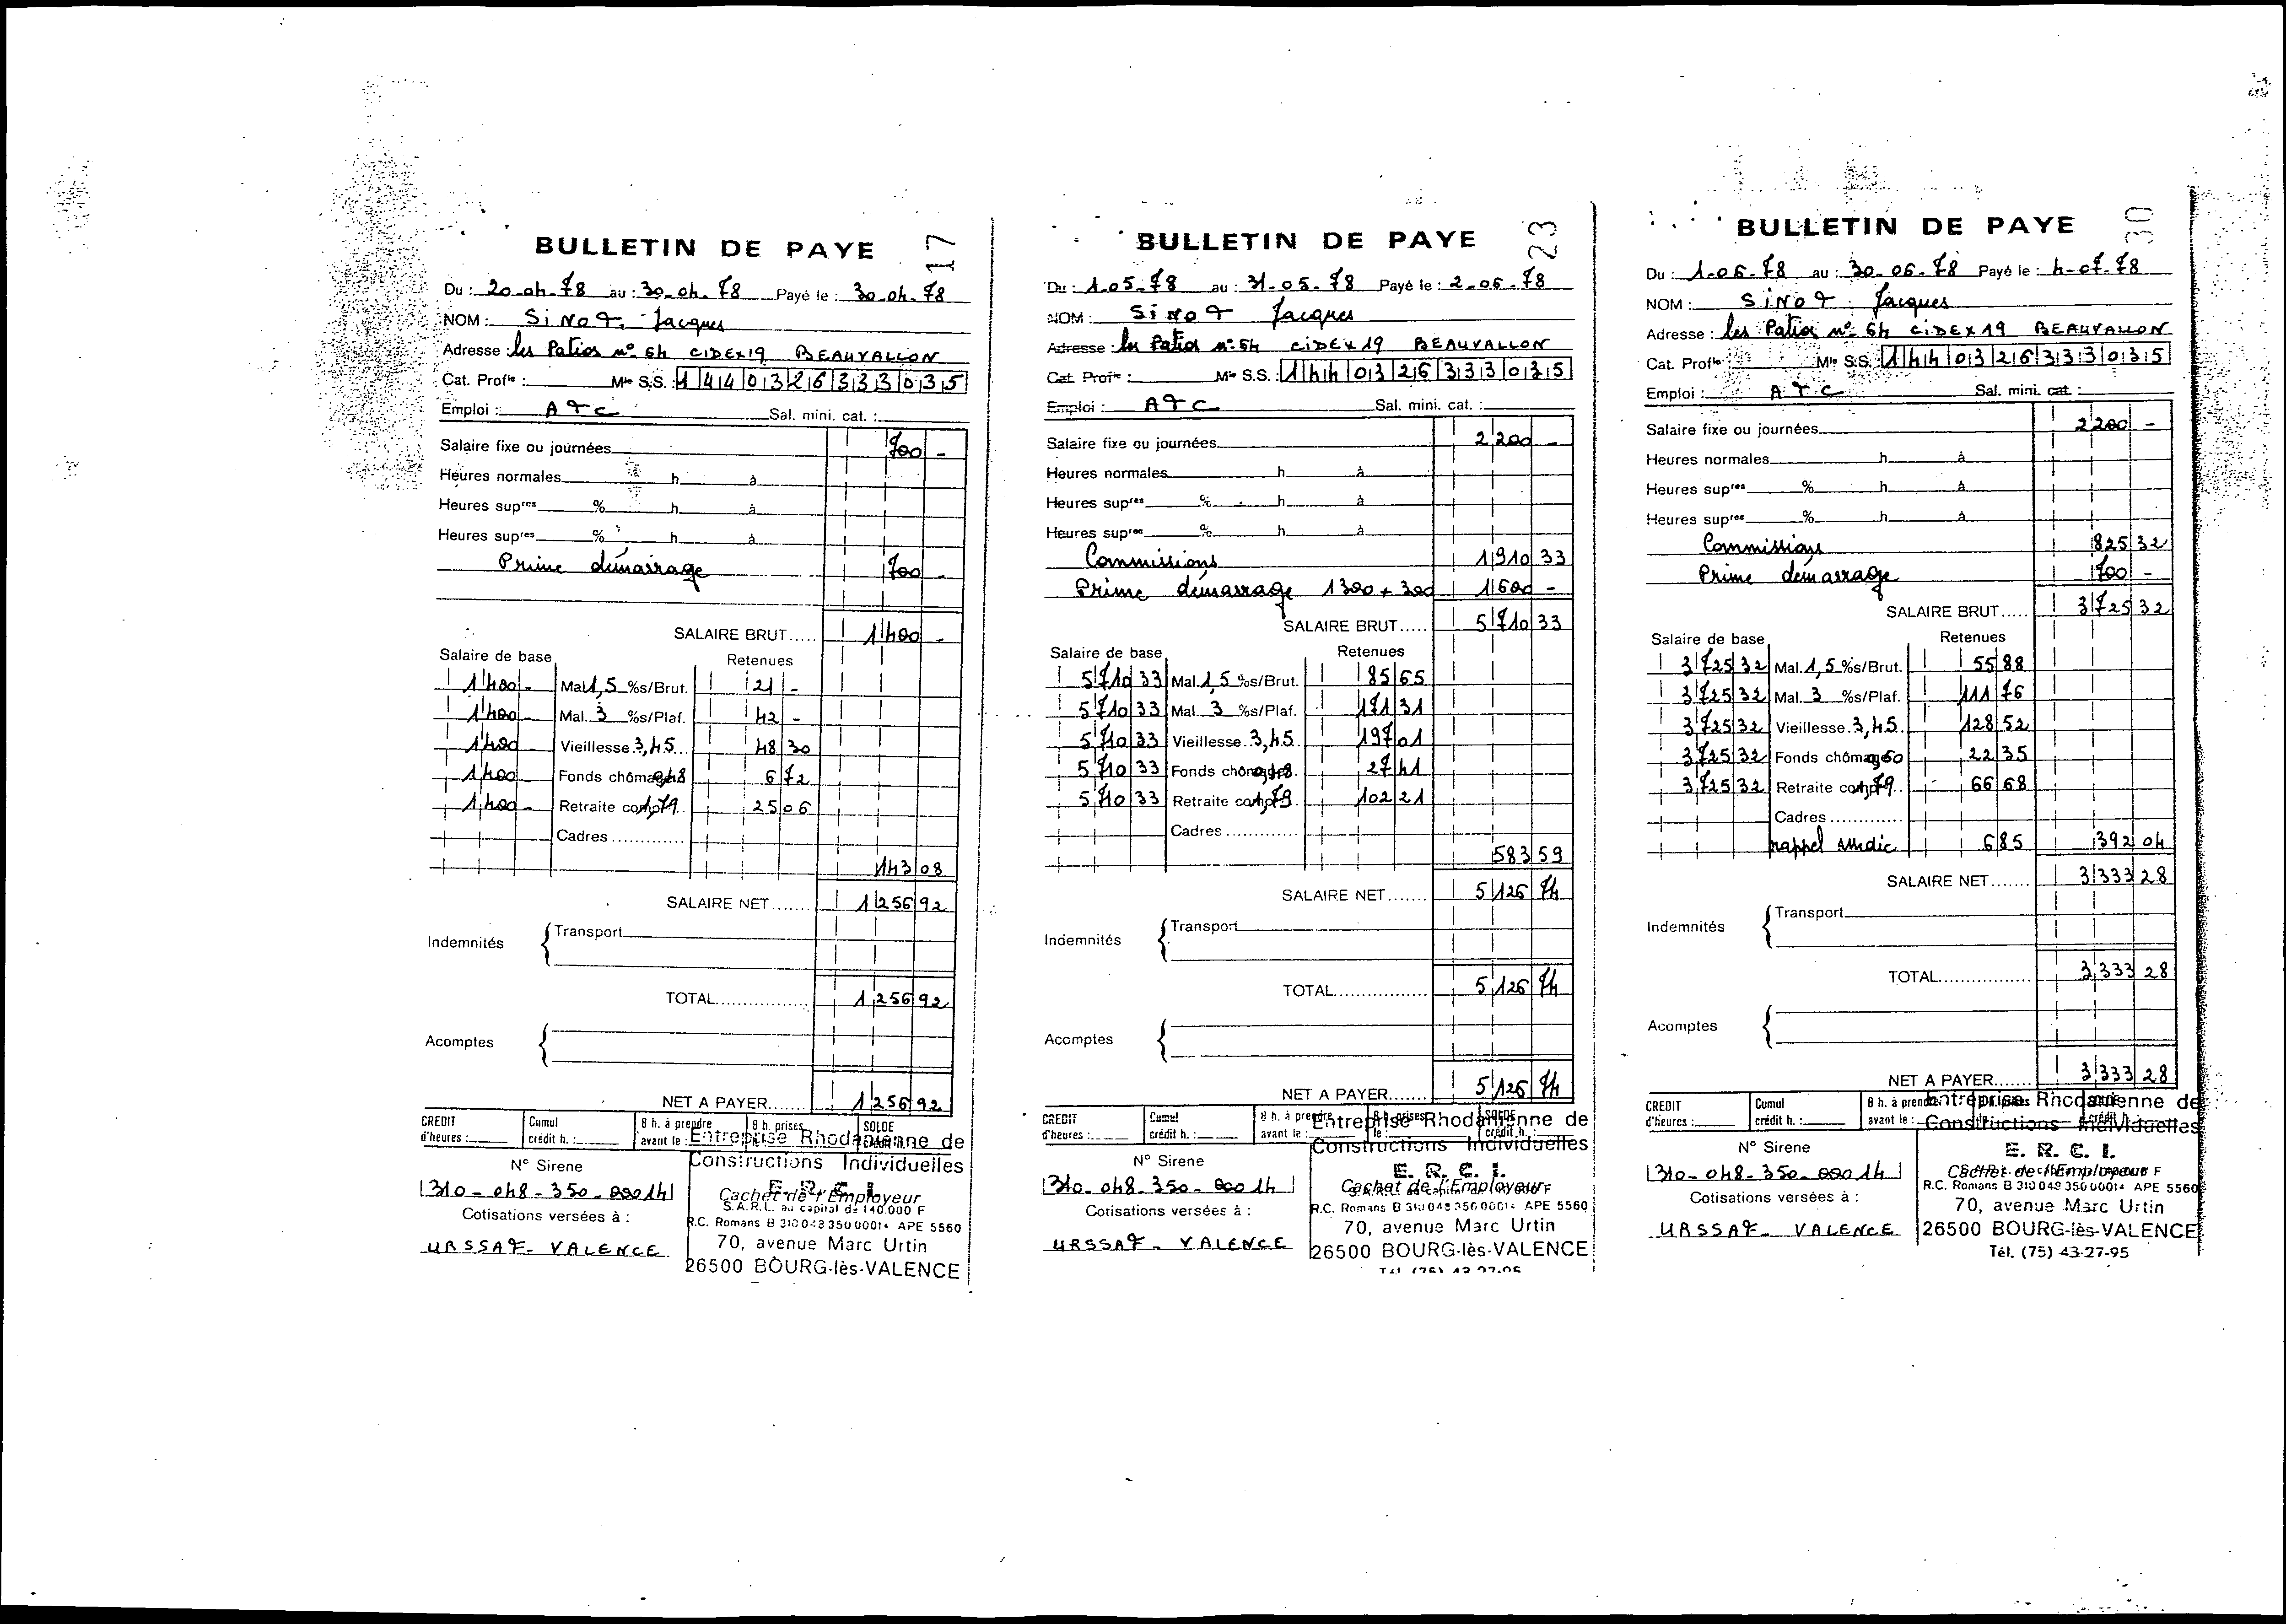 BULLETIN DE PAYE 17
Du : 20-04-78 au : 30-04-78 Payé le : 30-04-78
NOM : SINOT Jacques
Adresse : les Patios n° 64 CIDEX19 BEAUVALLON
Cat. Profle : Mle S.S. : 1 44 03 26 333 035
Emploi : ATC Sal. mini. cat. :
Salaire fixe ou journées 700 -
Heures normales h à
Heures supres % h à
Heures supres % h à
Prime démarrage 700 -
SALAIRE BRUT..... 1 400 -
Salaire de base Retenues
1 400 - Mal 1,5 %s/Brut. 21 -
1 400 - Mal. 3 %s/Plaf. 42 -
1 400 Vieillesse 3,45 48 30
1 400 Fonds chômage 0,48 6 72
1 400 - Retraite comp 1,79 25 06
Cadres .............
143 08
SALAIRE NET....... 1 256 92
Indemnités { Transport
TOTAL................. 1 256 92
Acomptes {
NET A PAYER....... 1 256 92
CREDIT d'heures : Cumul crédit h. : 8 h. à prendre avant le : 8 h. prises SOLDE
Entreprise Rhodanienne de
Constructions Individuelles
N° Sirene
310-048-350-00014
E. R. C. I.
Cachet de l'Employeur
S.A.R.L. au capital de 140.000 F
Cotisations versées à :
R.C. Romans B 310 048 350 00014 APE 5560
URSSAF - VALENCE
70, avenue Marc Urtin
26500 BOURG-lès-VALENCE
BULLETIN DE PAYE 23
Du : 1-05-78 au : 31-05-78 Payé le : 2-06-78
NOM : SINOT Jacques
Adresse : les Patios n° 64 CIDEX 19 BEAUVALLON
Cat. Profle : Mle S.S. : 1 44 03 26 333 035
Emploi : ATC Sal. mini. cat. :
Salaire fixe ou journées 2 200 -
Heures normales h à
Heures supres % h à
Heures supres % h à
Commissions 1 910 33
Prime démarrage 1300 + 300 1 600 -
SALAIRE BRUT..... 5 710 33
Salaire de base Retenues
5 710 33 Mal. 1,5 %s/Brut. 85 65
5 710 33 Mal. 3 %s/Plaf. 171 31
5 710 33 Vieillesse 3,45 197 01
5 710 33 Fonds chômage 0,48 27 41
5 710 33 Retraite comp 1,79 102 21
Cadres .............
583 59
SALAIRE NET....... 5 126 74
Indemnités { Transport
TOTAL................. 5 126 74
Acomptes {
NET A PAYER....... 5 126 74
CREDIT d'heures : Cumul crédit h. : 8 h. à prendre avant le : 8 h. prises le : SOLDE crédit h. :
Entreprise Rhodanienne de
Constructions Individuelles
N° Sirene
310-048-350-00014
E. R. C. I.
Cachet de l'Employeur
Cotisations versées à :
R.C. Romans B 310 048 350 00014 APE 5560
URSSAF - VALENCE
70, avenue Marc Urtin
26500 BOURG-lès-VALENCE
Tél. (75) 43-27-95
BULLETIN DE PAYE 30
Du : 1-06-78 au : 30-06-78 Payé le : 4-07-78
NOM : SINOT Jacques
Adresse : les Patios n° 64 CIDEX19 BEAUVALLON
Cat. Profle : Mle S.S. : 1 44 03 26 333 035
Emploi : ATC Sal. mini. cat. :
Salaire fixe ou journées 2 200 -
Heures normales h à
Heures supres % h à
Heures supres % h à
Commissions 825 32
Prime démarrage 700 -
SALAIRE BRUT..... 3 725 32
Salaire de base Retenues
3 725 32 Mal. 1,5 %s/Brut. 55 88
3 725 32 Mal. 3 %s/Plaf. 111 76
3 725 32 Vieillesse 3,45 128 52
3 725 32 Fonds chômage 0,60 22 35
3 725 32 Retraite comp 1,79 66 68
Cadres .............
rappel Assedic 6 85 392 04
SALAIRE NET....... 3 333 28
Indemnités { Transport
TOTAL................. 3 333 28
Acomptes {
NET A PAYER....... 3 333 28
CREDIT d'heures : Cumul crédit h. : 8 h. à prendre avant le :
Entreprise Rhodanienne de
Constructions Individuelles
N° Sirene
310-048-350-00014
E. R. C. I.
Cachet de l'Employeur
Cotisations versées à :
R.C. Romans B 310 048 350 00014 APE 5560
URSSAF - VALENCE
70, avenue Marc Urtin
26500 BOURG-lès-VALENCE
Tél. (75) 43-27-95